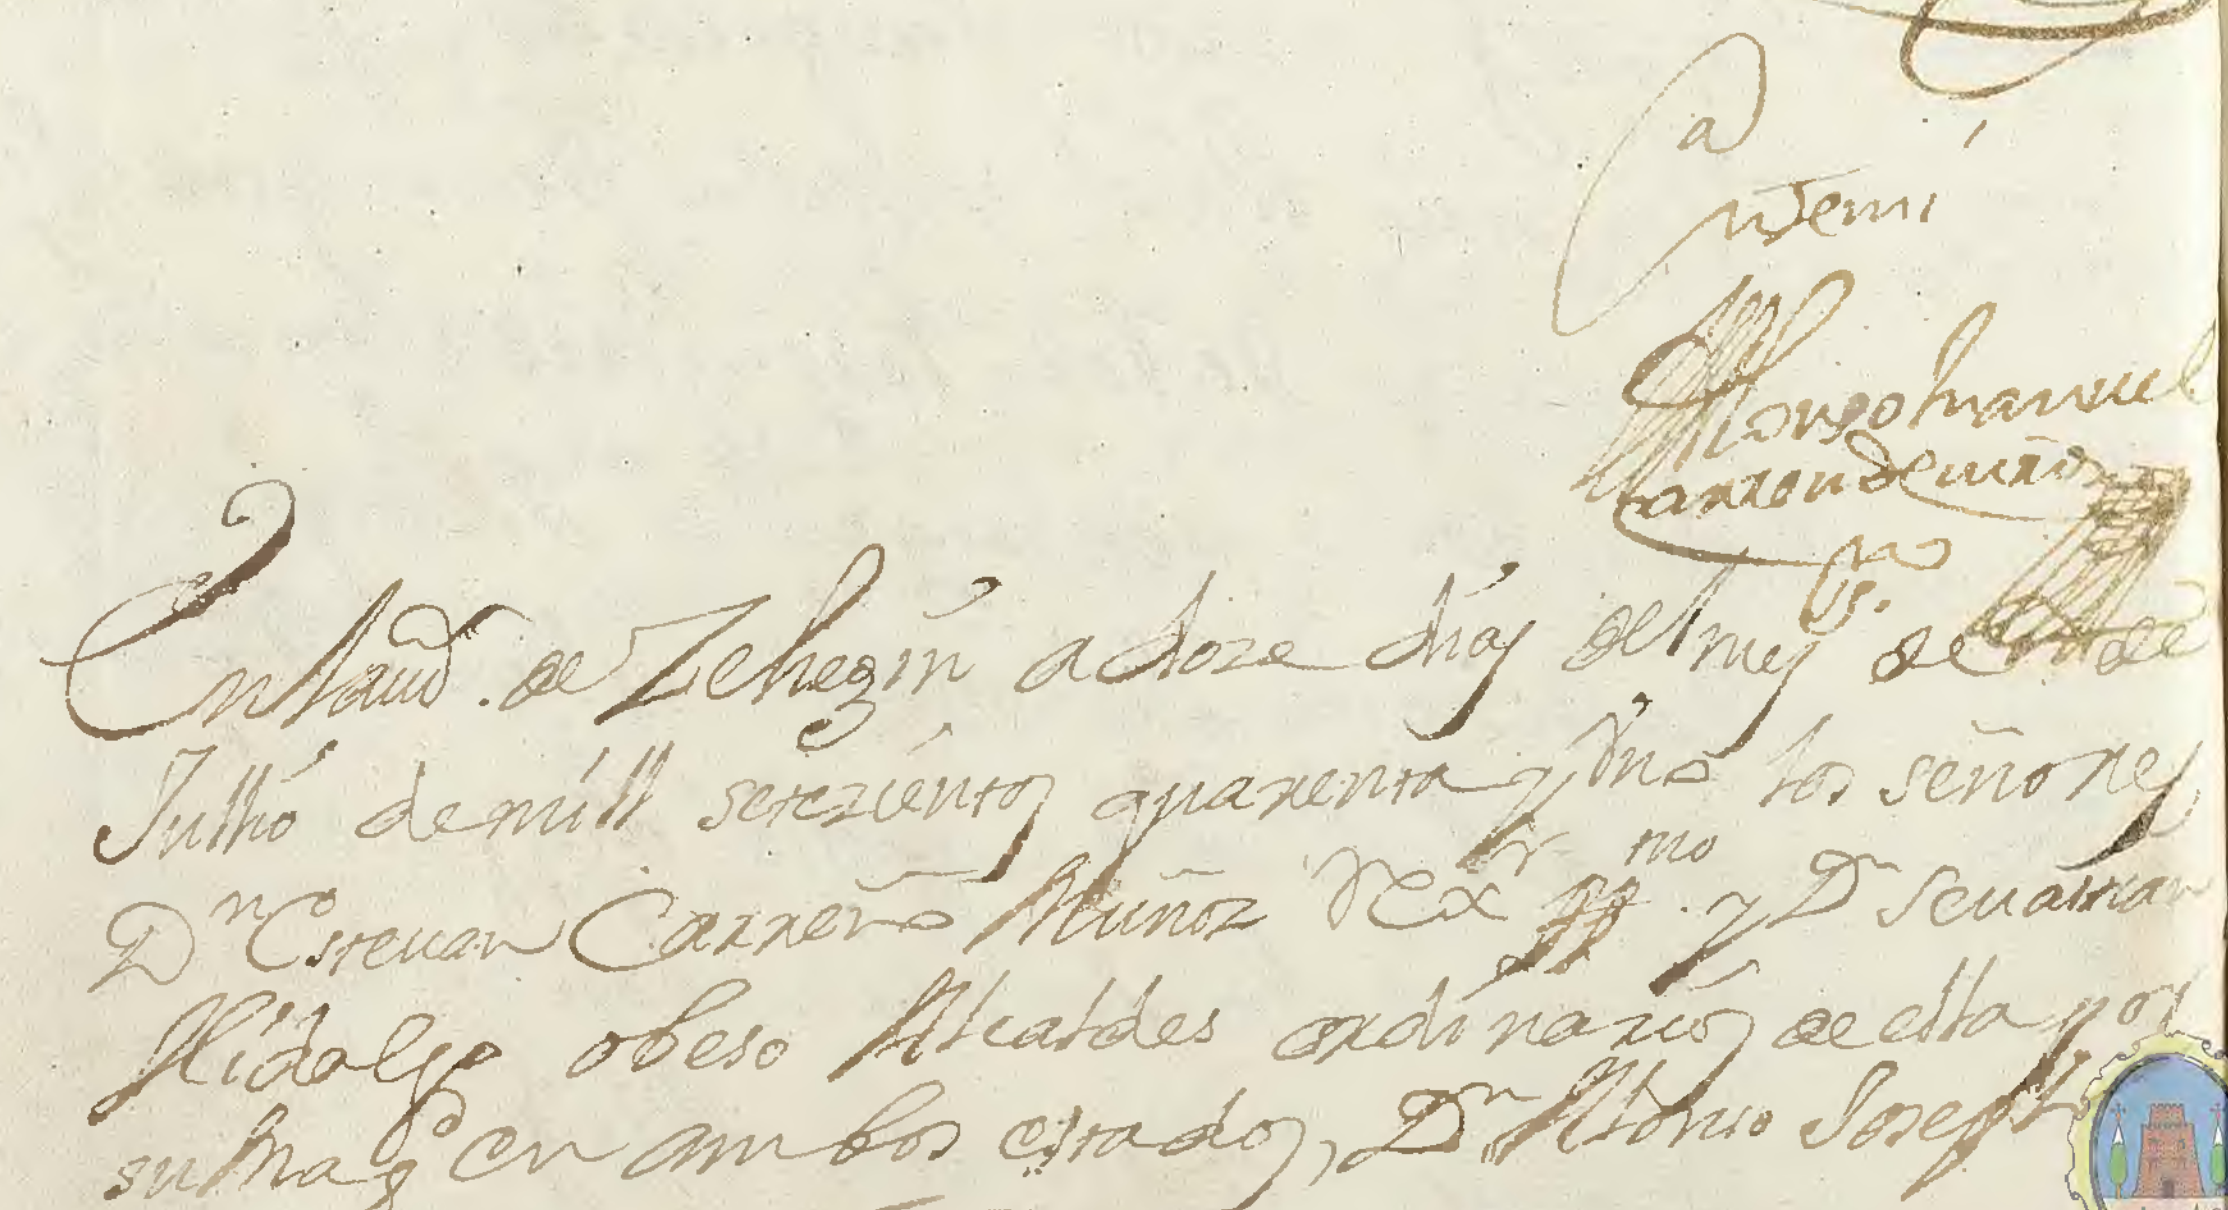 Antemi
Alonso Manuel
Carreon de
ss.
En la Villa. de Zehegin a doze dias del mes de de
Jullio de mill setezientos quarenta y Uno los señores
Dn Estevan Carreño Muñoz y Dn Sevastian
Hidalgo obeso Alcaldes ordinarios de ella por
su Magd en ambos estados, Dn Alonso Joseph